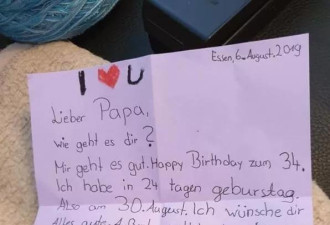 Essen, 6. August, 2019
I ❤ U
Lieber Papa,
wie geht es dir?
Mir geht es gut. Happy Birthday zum 34.
Ich habe in 24 tagen geburstag.
Also am 30. August. Ich wünsche dir
Alles gute